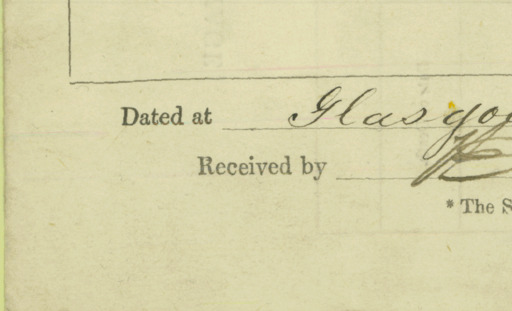 Dated at Glasgo
Received by
* The S